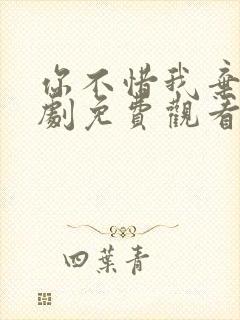 你不惜我棄
劇免費觀看
四葉青